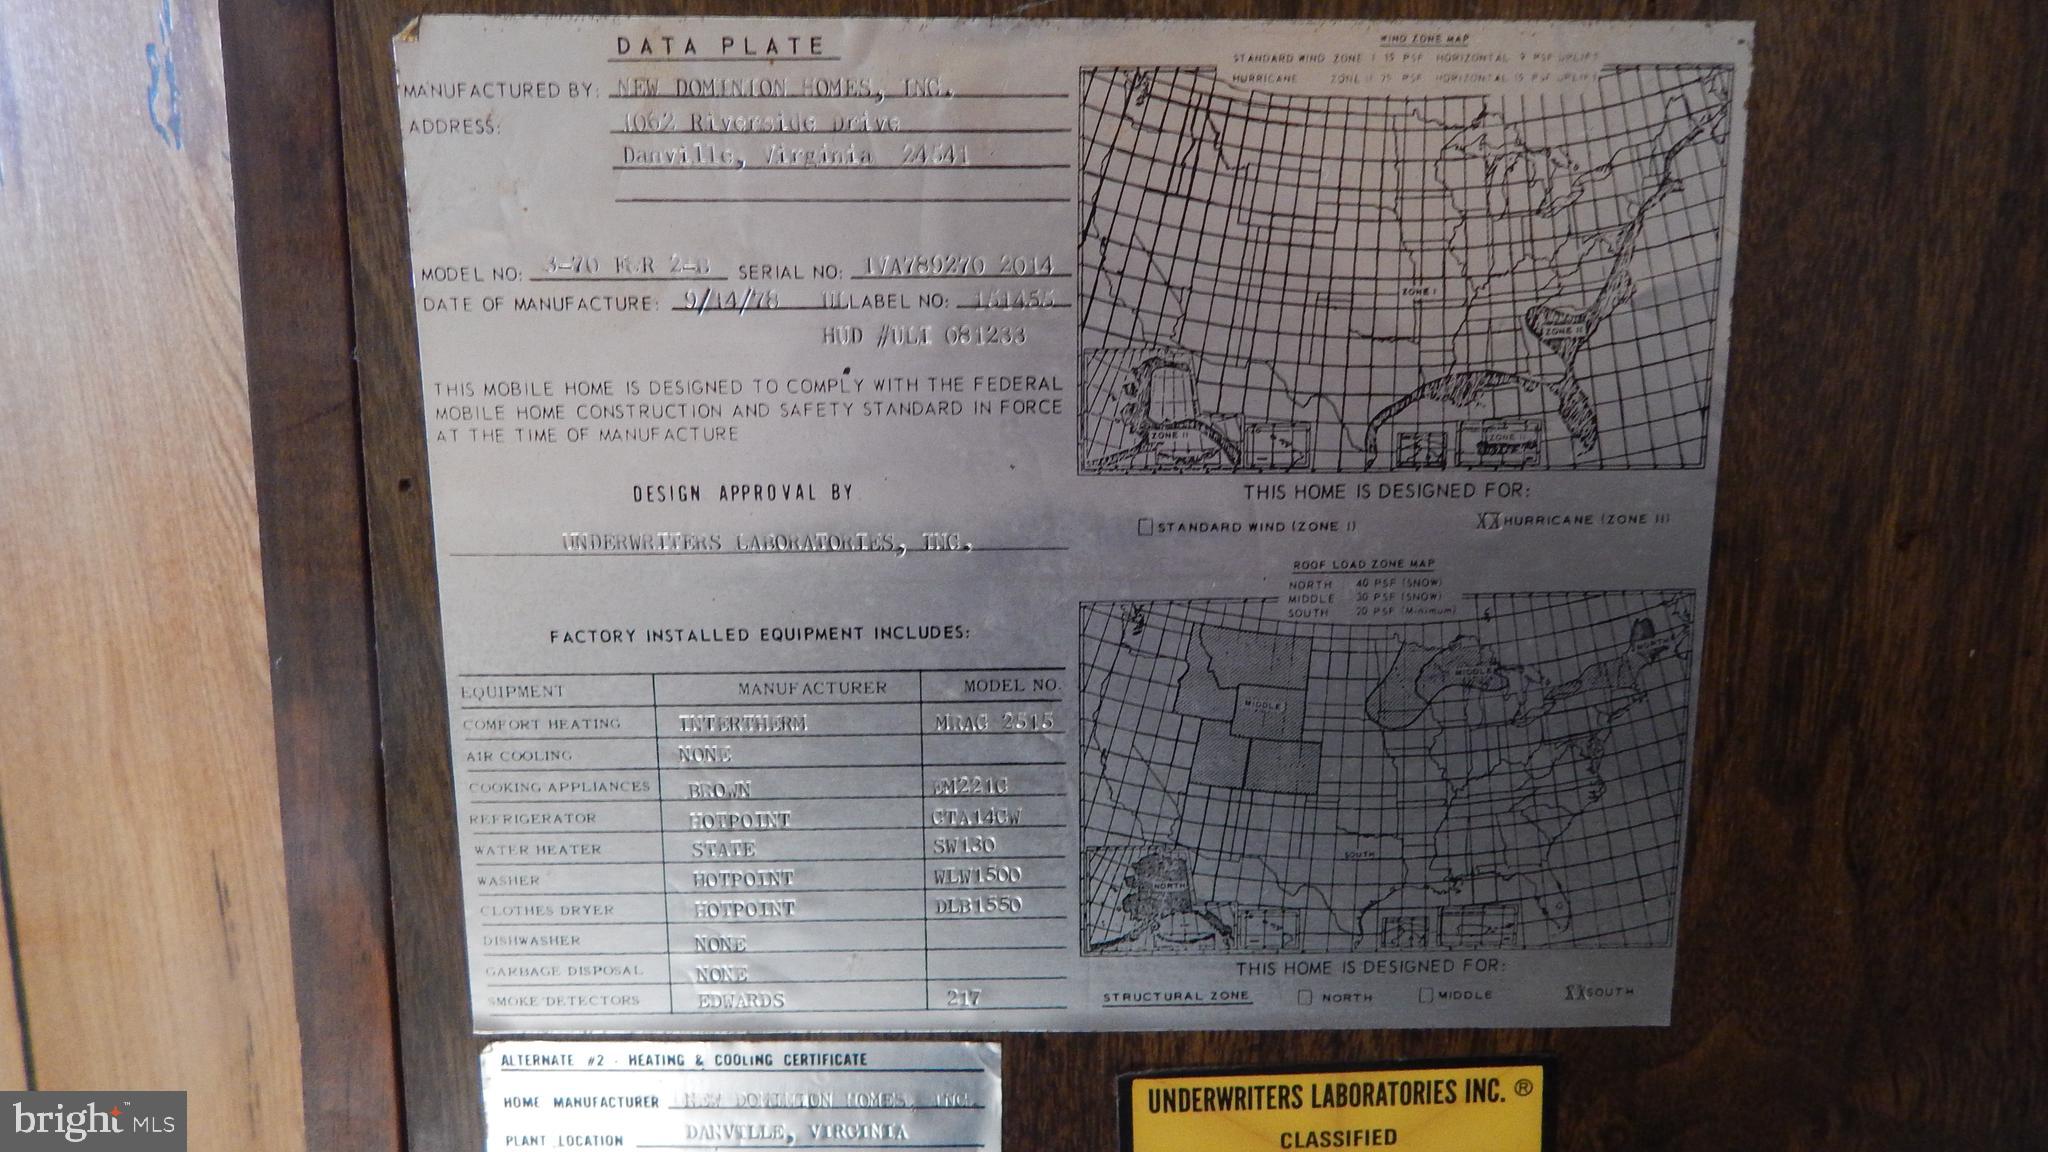 DATA PLATE
MANUFACTURED BY: NEW DOMINION HOMES, INC.
ADDRESS: 1062 Riverside Drive
Danville, Virginia 24541
MODEL NO: 3-70 FKR 2-B SERIAL NO: IVA789270 2014
DATE OF MANUFACTURE: 9/14/78 ULLABEL NO: 151455
HUD #ULI 081233
THIS MOBILE HOME IS DESIGNED TO COMPLY WITH THE FEDERAL
MOBILE HOME CONSTRUCTION AND SAFETY STANDARD IN FORCE
AT THE TIME OF MANUFACTURE
DESIGN APPROVAL BY
UNDERWRITERS LABORATORIES, INC.
FACTORY INSTALLED EQUIPMENT INCLUDES:
EQUIPMENT MANUFACTURER MODEL NO.
COMFORT HEATING INTERTHERM MRAG 2515
AIR COOLING NONE
COOKING APPLIANCES BROWN EM221G
REFRIGERATOR HOTPOINT CTA14CW
WATER HEATER STATE SW130
WASHER HOTPOINT WLW1500
CLOTHES DRYER HOTPOINT DLB1550
DISHWASHER NONE
GARBAGE DISPOSAL NONE
SMOKE DETECTORS EDWARDS 217
WIND ZONE MAP
STANDARD WIND ZONE I 15 PSF HORIZONTAL 9 PSF UPLIFT
HURRICANE ZONE II 25 PSF HORIZONTAL 15 PSF UPLIFT
ZONE I
ZONE II
ZONE II
ZONE II
THIS HOME IS DESIGNED FOR:
STANDARD WIND (ZONE I) XX HURRICANE (ZONE II)
ROOF LOAD ZONE MAP
NORTH 40 PSF (SNOW)
MIDDLE 30 PSF (SNOW)
SOUTH 20 PSF (Minimum)
NORTH
MIDDLE
MIDDLE
SOUTH
NORTH
THIS HOME IS DESIGNED FOR:
STRUCTURAL ZONE NORTH MIDDLE XX SOUTH
ALTERNATE #2 - HEATING & COOLING CERTIFICATE
HOME MANUFACTURER NEW DOMINION HOMES, INC.
PLANT LOCATION DANVILLE, VIRGINIA
UNDERWRITERS LABORATORIES INC.®
CLASSIFIED
bright MLS